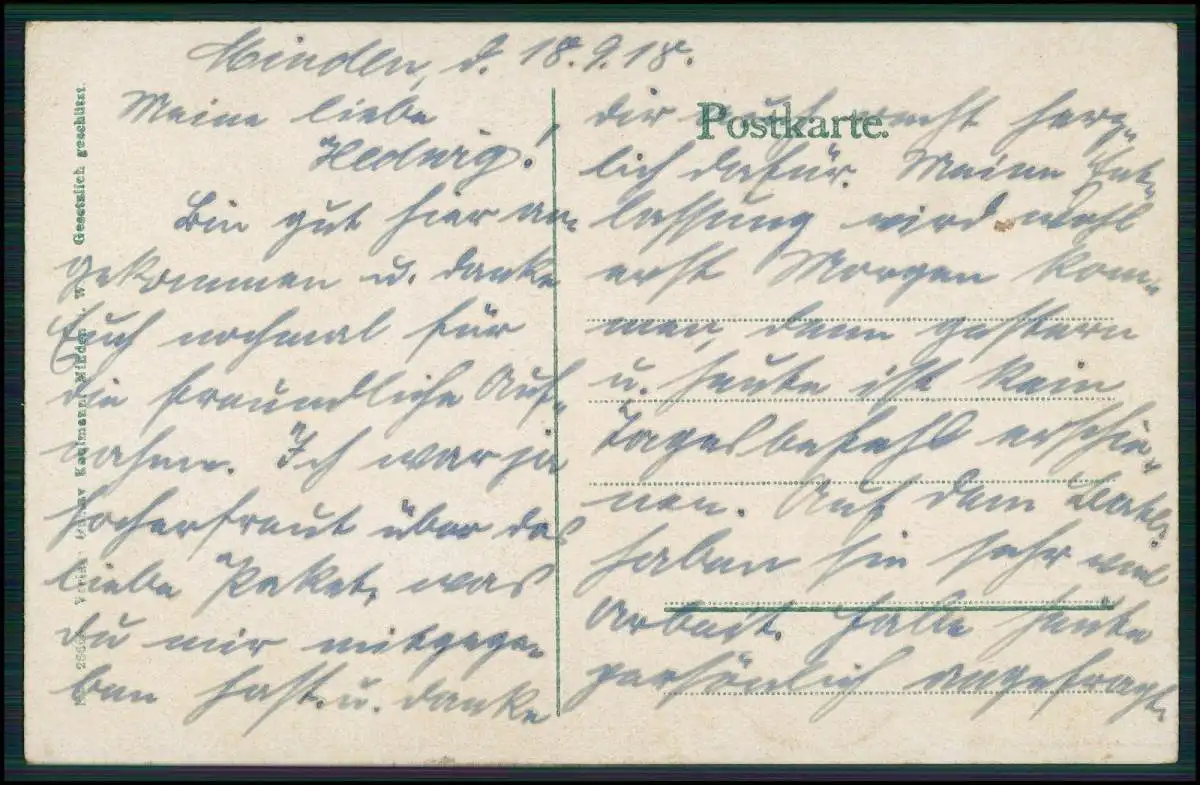 Minden, d. 18.9.18.
Meine liebe
Hedwig!
Bin gut hier an-
gekommen u. danke
Euch nochmal für
die freundliche Auf-
nahme. Ich war ja
hocherfreut über das
liebe Paket, was
du mir mitgege-
ben hast. u. danke
dir auch recht herz-
lich dafür. Meine Ent-
lassung wird wohl
erst Morgen kom-
men, denn gestern
u. heute ist kein
Tagesbefehl erschie-
nen. Auf dem Batl.
haben sie sehr viel
Arbeit. Habe heute
persönlich angefragt.
Postkarte.
Verlag Gustav Kaufmann, Minden i. W. Gesetzlich geschützt.